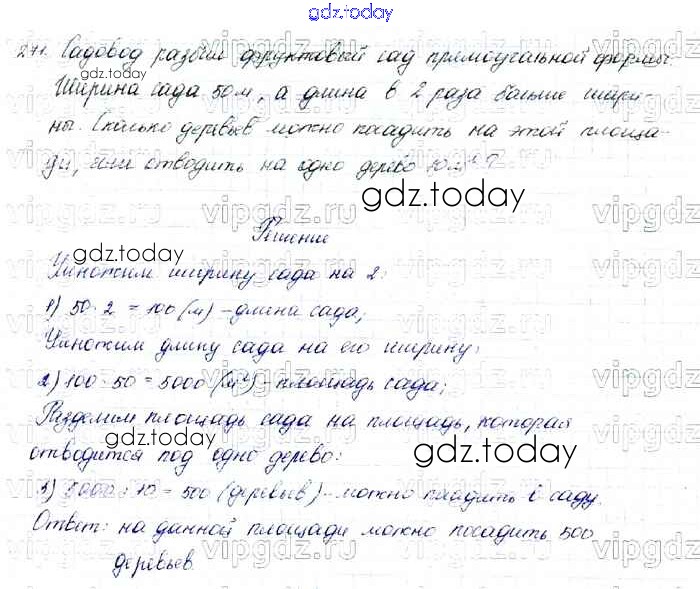 gdz.today
271. Садовод разбил фруктовый сад прямоугольной формы.
Ширина сада 50 м, а длина в 2 раза больше шири-
ны. Сколько деревьев можно посадить на этой площа-
ди, если отводить на одно дерево 10 м²?
Решение
Умножим ширину сада на 2:
1) 50 · 2 = 100 (м) - длина сада;
Умножим длину сада на его ширину:
2) 100 · 50 = 5000 (м²) - площадь сада;
Разделим площадь сада на площадь, которая
отводится под одно дерево:
3) 5000 : 10 = 500 (деревьев) - можно посадить в саду.
Ответ: на данной площади можно посадить 500
деревьев.
gdz.today
gdz.today
gdz.today
gdz.today
gdz.today
vipgdz.ru